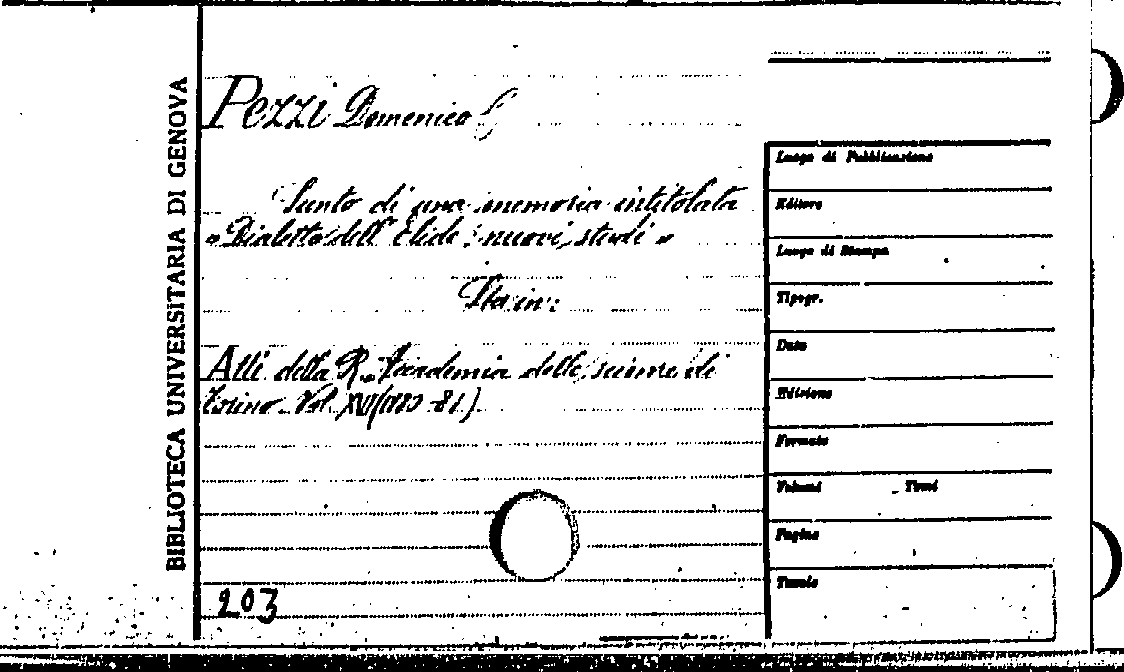 BIBLIOTECA UNIVERSITARIA DI GENOVA
Pezzi Domenico
Sunto di una memoria intitolata
« Dialetto dell' Elide: nuovi studi »
Sta in:
Atti della R. Accademia delle scienze di
Torino. Vol. XVI (1880-81)
203
Luogo di Pubblicazione
Editore
Luogo di Stampa
Tipogr.
Data
Edizione
Formato
Volumi - Tomi
Pagine
Tavole